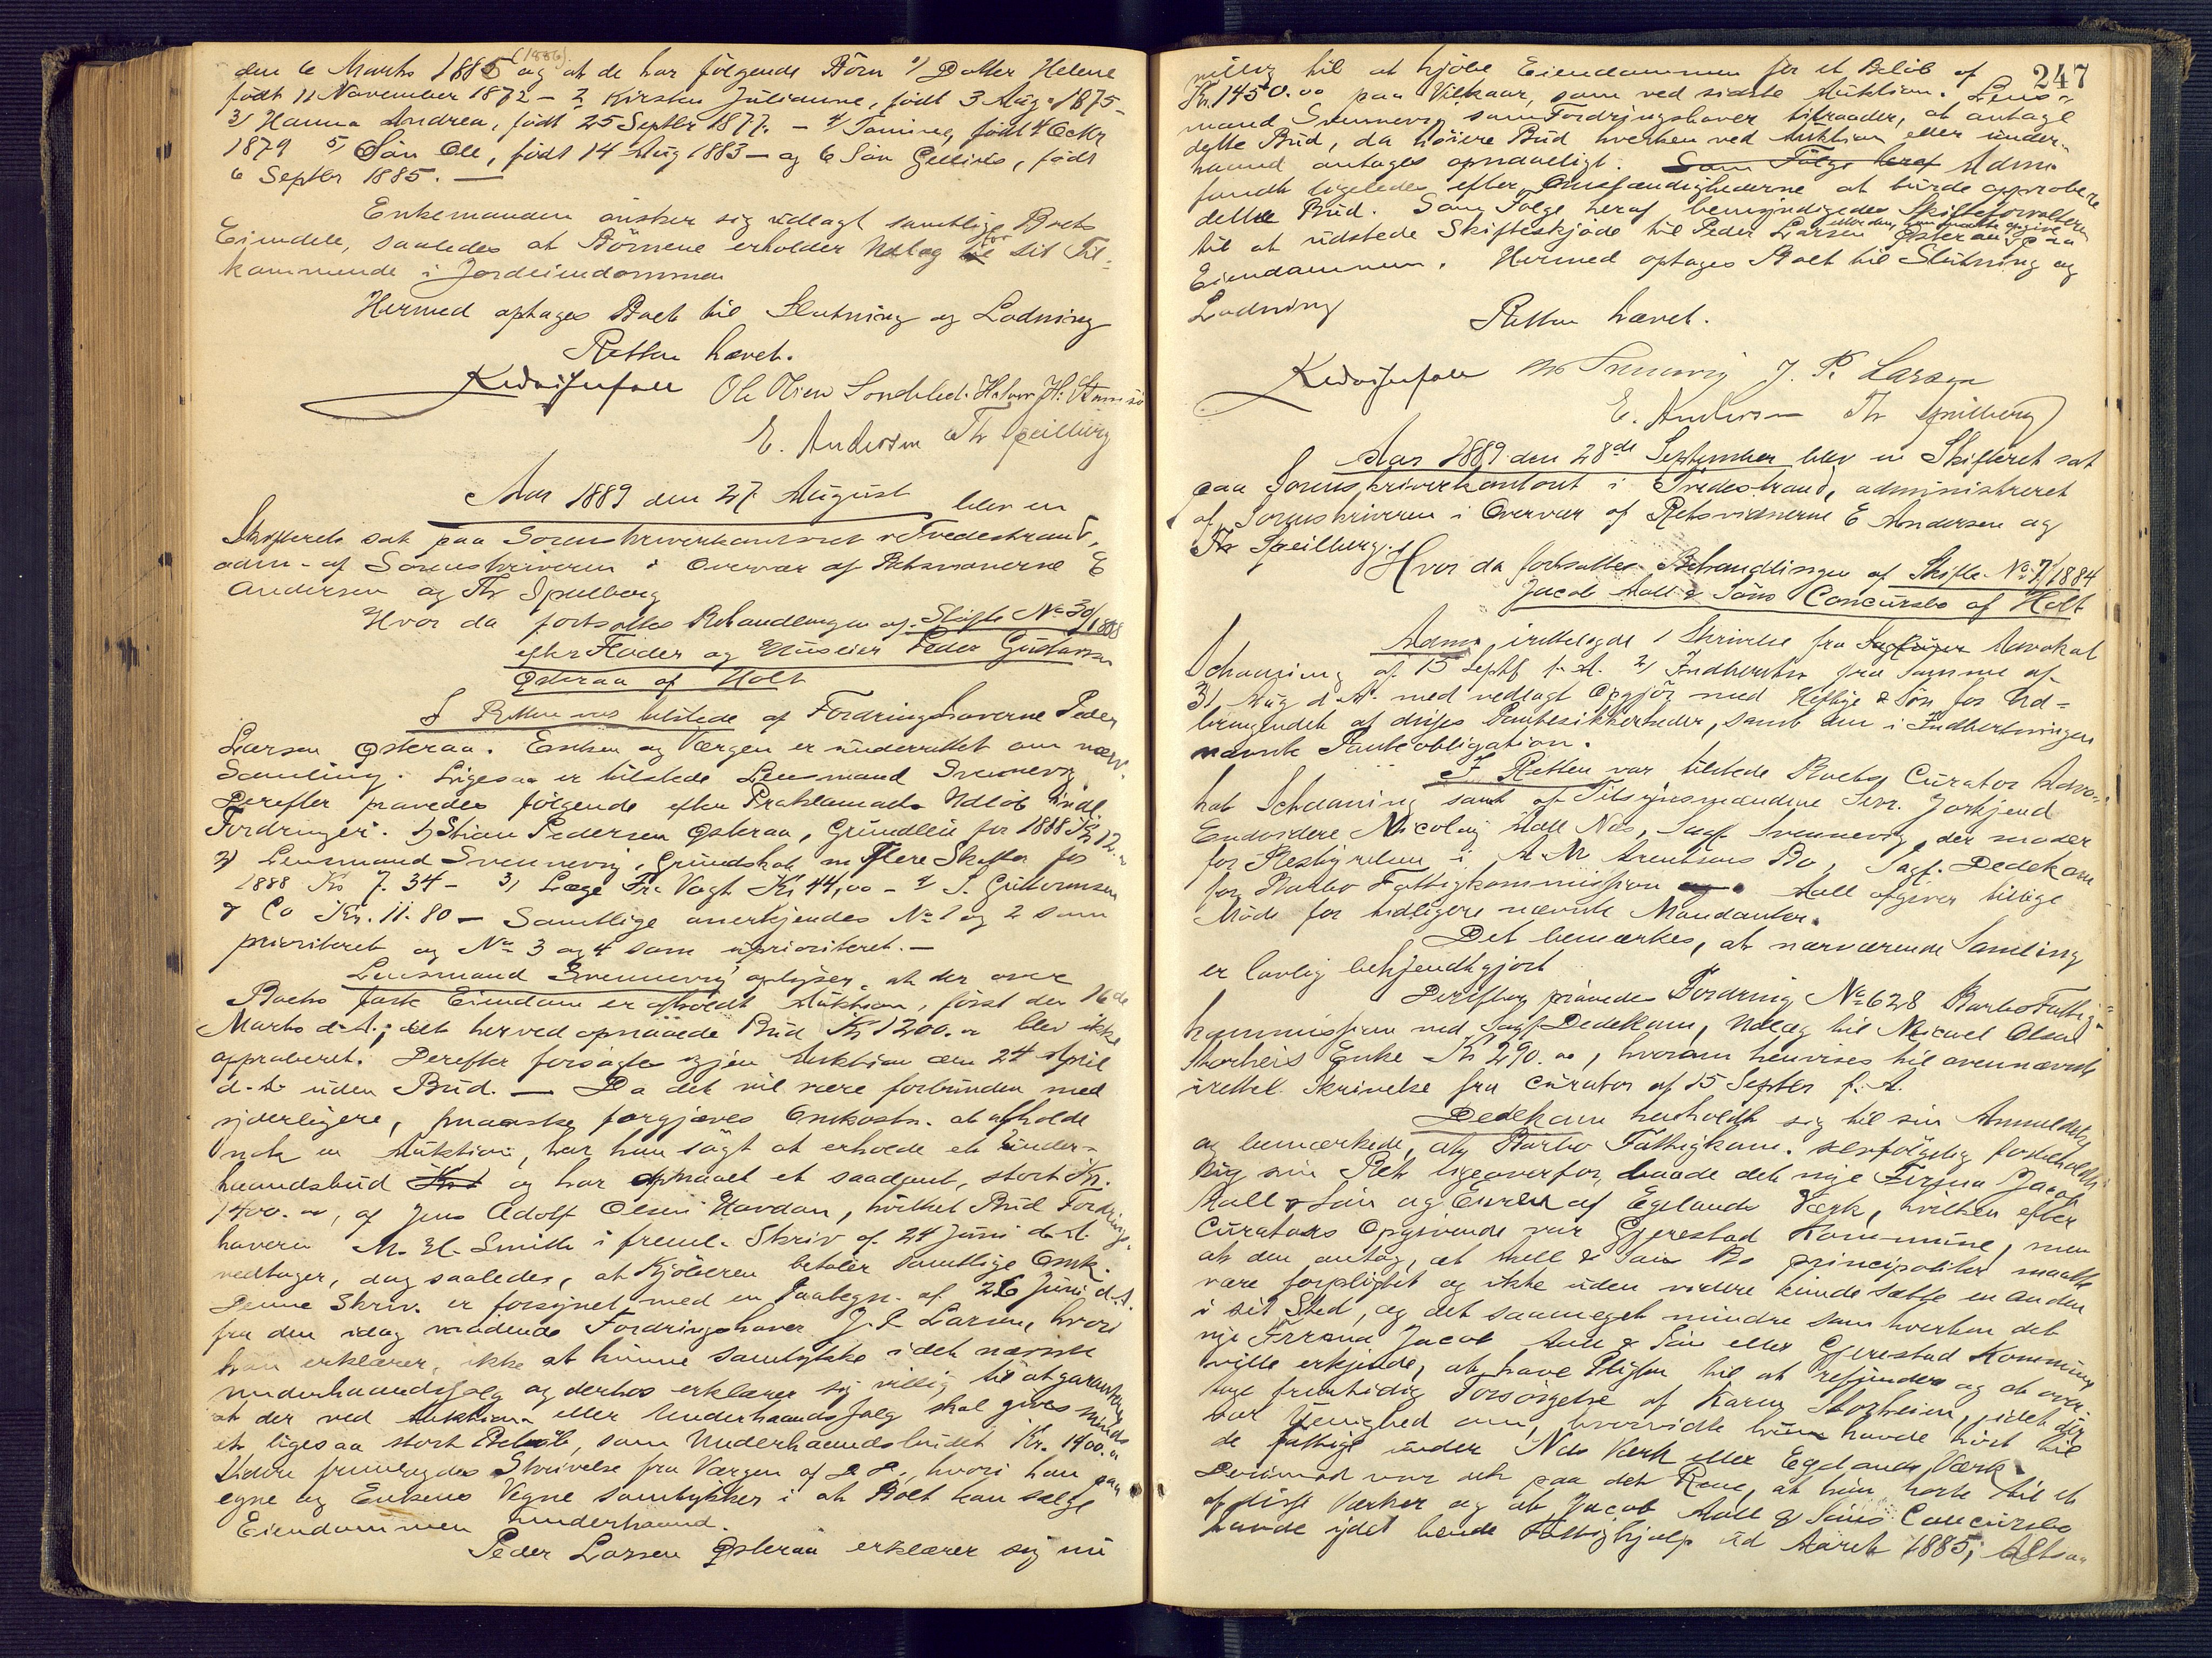 den 6 Marts 1885 (1886) og at de har følgende Børn 1/ Datter Helene
født 11 November 1872 – 2 Kirsten Julianne, født 3 Aug. 1875 –
3/ Hanna Andrea, født 25 Septbr 1877. – 4/ Tomine, født 4 Octbr
1879 5/ Søn Ole, født 14 Aug 1883 – og 6 Søn Gellius, født
6 Septbr 1885. —
Enkemanden ønsker sig udlagt samtlige Boets
Eiendele, saaledes at Børnene erholder Udlæg for sit Til-
kommende i Jordeiendommen
Hermed optages Boet til Slutning og Lodning
Retten hævet.
Ole Olsen Søndeled. Halvor H.
E. Andersen Th Speilberg
Aar 1889 den 27 August blev en
Skifteret sat paa Sorenskriverkontoret i Tvedestrand,
adm. af Sorenskriveren i Overvær af Retsvidnerne E
Andersen og Th Speilberg
Hvor da fortsattes Behandlingen af Skifte No 30/1888
efter Fløder og Huseier Peder Gustavsen
Østeraa af Holt
I Retten var tilstede af Fordringshaverne Peder
Larsen Østeraa. Enken og Værgen er underrettet om nærv.
Samling. Ligesaa er tilstede Lensmand Svennevig
Derefter prøvedes følgende efter Proklamaets Udløb indl.
Fordringer. 1/ Stian Pedersen Østeraa, Grundleie for 1888 Kr 12.
2) Lensmand Svennevig, Grundskat m flere Skatter for
1888 Kr 7. 34 – 3/ Læge Fr. Vogt Kr 44,00 – 4/ S. Guttormsen
& Co Kr. 11. 80 – Samtlige anerkjendes No 1 og 2 som
prioriteret og No 3 og 4 som uprioriteret. –
Lensmand Svennevig oplyser, at der over
Boets faste Eiendom er afholdt Auktion, først den 16de
Marts d. A.; det herved opnaaede Bud Kr 1200.00 blev ikke
approberet. Derefter forsøgtes igjen Auktion den 24 April
d. A. uden Bud. — Da det vil være forbunden med
yderligere, maaske forgjæves Omkostn. at afholde
nok en Auktion, har han søgt at erholde et under-
haandsbud og har opnaaet et saadant, stort Kr.
1400.00, af Jens Adolf Olsen Havdan, hvilket Bud Fordrings-
haveren M. H. Smith i freml. Skriv af 24 Juni d. A.
vedtager, dog saaledes, at Kjøberen betaler samtlige Omk.
Denne Skriv. er forsynet med en Paategn. af 26 Juni d. A.
fra den idag mødende Fordringshaver J. P. Larsen, hvori
han erklærer, ikke at kunne samtykke i det nævnte
underhaandssalg og derhos erklærer sig villig til at garantere
at der ved Auktion eller Underhaandssalg skal gives mindst
et ligesaa stort Beløb, som Underhaandsbudet Kr. 1400.00
Videre fremlagdes Skrivelse fra Værgen af d. D., hvori han paa
egne og Enkens Vegne samtykker i at Boet kan sælge
Eiendommen underhaand.
Peder Larsen Østeraa erklærer sig nu
247
villig til at kjøbe Eiendommen for et Beløb af
Kr. 1450.00 paa Vilkaar, som ved sidste Auktion. Lens-
mand Svennevig som Fordringshaver tilraader, at antage
dette Bud, da høiere Bud hverken ved Auktion eller under-
haand antages opnaaeligt. Som Følge heraf Adm.
fandt ligeledes efter Omstændighederne at burde approbere
dette Bud. Som Følge heraf bemyndigedes Skifteforvalteren
til at udstede Skifteskjøde til Peder Larsen Østeraa paa
Eiendommen. Hermed optages Boet til Slutning og
Lodning
Retten hævet.
Svennevig J. P. Larsen
E. Andersen Th Speilberg
Aar 1889 den 28de September blev en Skifteret sat
paa Sorenskriverkontoret i Tvedestrand, administreret
af Sorenskriveren i Overvær af Retsvidnerne E Andersen og
Th Speilberg.
Hvor da fortsattes Behandlingen af Skifte No. 7/1884
Jacob Aall & Søns Concursbo af Holt
Adm. irettelagde 1 Skrivelse fra Sagfører Advokat
Schaaning af 15 Septbr f. A. 2/ Indberetn fra samme af
31 Aug d. A. med vedlagt Opgjør med Heftye & Søn for Ud-
bringendet af disses Pantesikkerheder, samt den i Indberetningen
nævnte Panteobligation.
I Retten var tilstede Boets Curator Advo-
kat Schaaning samt af Tilsynsmændene Sevr. Jorkjend
Endvidere Nicolay Aall Næs, Sagf. Svennevig, der møder
for Bestyrelsen i A M Arentsens Bo, Sagf. Dedekam
for Barbo Fattigkommission Aall afgiver tillige
Møde for tidligere nævnte Mandanter.
Det bemærkes, at nærværende Samling
er lovlig bekjendtgjort
Derefter prøvedes Fordring No 628 Barbo Fattig-
kommission ved Sagf. Dedekam, Udlæg til Micael Olsen
Storheis Enke Kr 290.00, hvorom henvises til ovennævnte
irettel. Skrivelse fra Curator af 15 Septbr f. A.
Dedekam henholdt sig til sin Anmeldelse
og bemærkede, at Barbo Fattigkom. selvfølgelig forbeholdt
sig sin Ret ligeoverfor baade det nye Firma Jacob
Aall & Søn og Eieren af Egelands Værk, hvilken efter
Curators Opgivende var Gjerestad Kommune, men
at den antog, at Aall & Søns Bo principaliter maatte
være forpligtet og ikke uden videre kunde sætte en anden
i sit Sted, og det saameget mindre som hverken det
nye Firma Jacob Aall & Søn eller Gjerestad Kommune
ville erkjende, at have Pligten til at refundere og at over-
tage fremtidig Forsørgelse af Karen Storheien, idet der
var Uenighed om, hvorvidt hun havde hørt til
de fattige under Næs Værk eller Egelands Værk.
Derimod var det paa det Rene, at hun hørte til et
af disse Værker og at Jacob Aall & Søns Concursbo
havde ydet hende Fattighjælp ud Aaret 1885; Altsaa